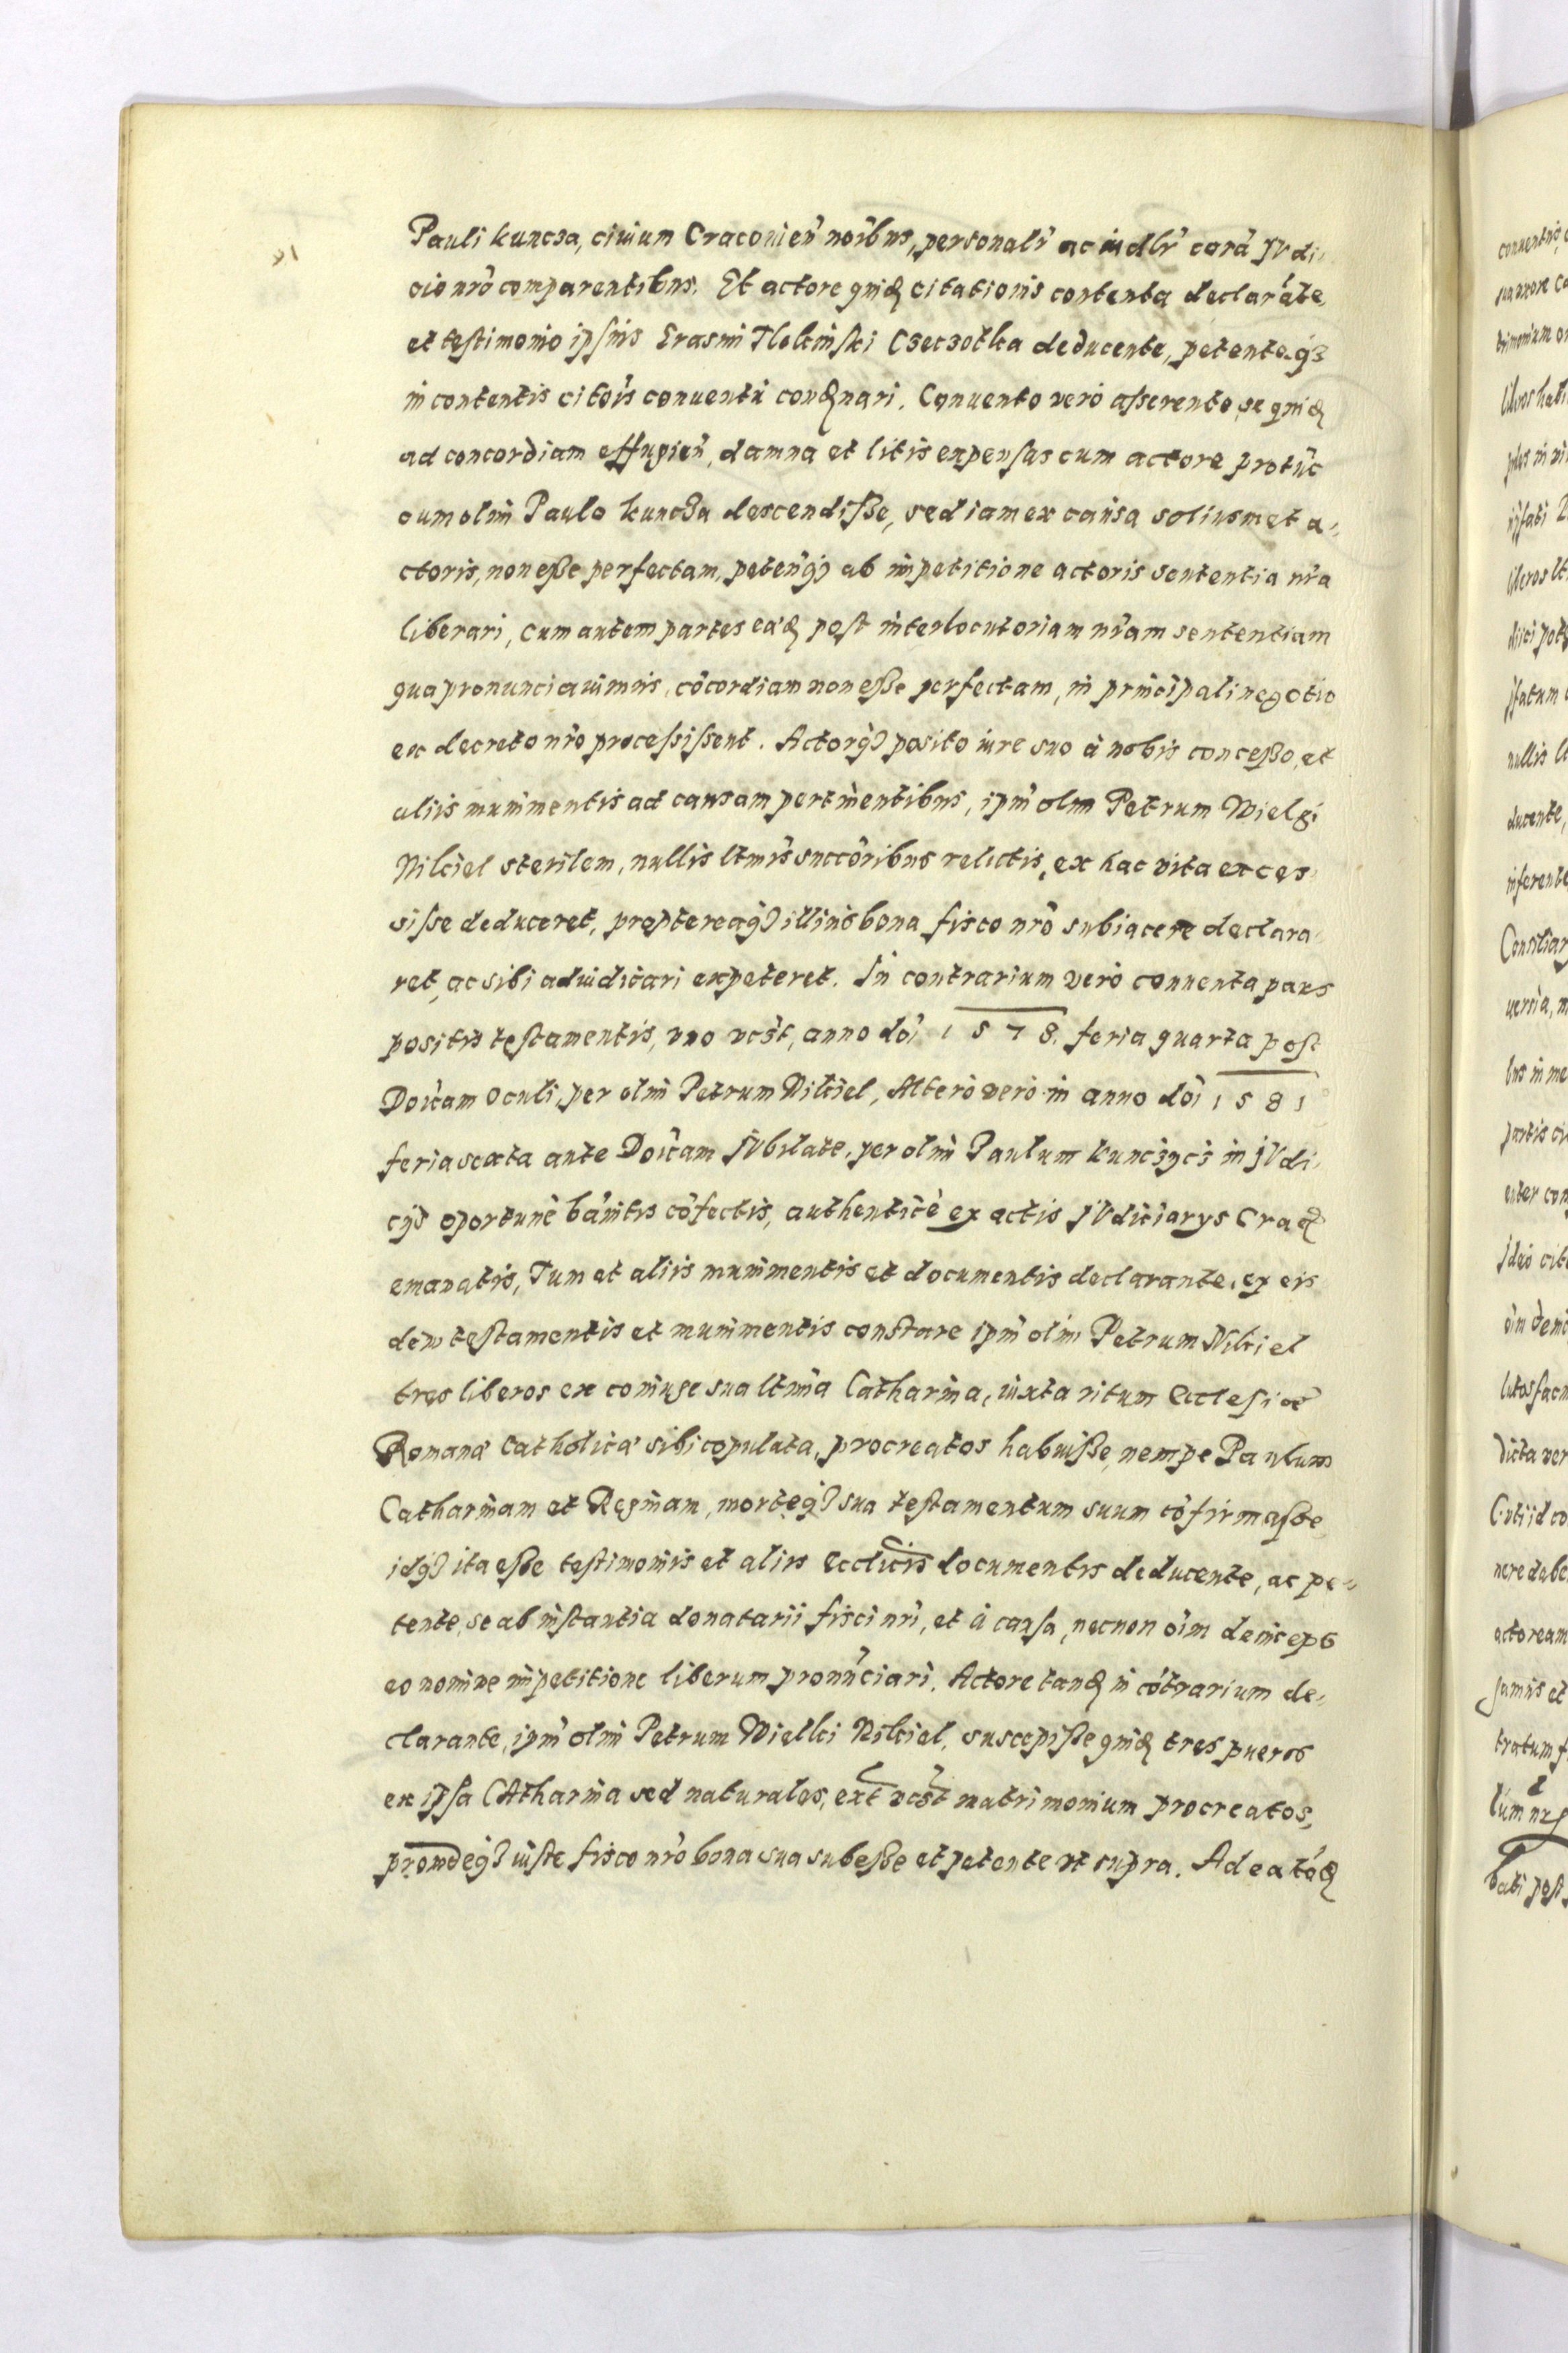 Pauli kuncza, ciuium Craconień noı̃bus, personalr̃ ac iudlr̃ corã JVdi-
cio nrõ comparentibus. Et actore quid citationis contenta declarãte,
et testimonio ipsius Erasmi Tlokinski Czeczotka deducente, petenteq3
in contentis citoı̃s conuentũ condnari. Conuento vero asserente, se quid
ad concordiam effugień, damna et litis expensas cum actore protũc
cum olim Paulo kuncza descendisse, sed iam ex causa soliusmet a-
ctoris, non esse perfectam, peteñq3 ab impetitione actoris sententia nrã
liberari, Cum autem partes eãd post interlocutoriam nrãm sententiam
qua pronunciauimus, cõcordiam non esse perfectam, in principali negotio
ex decreto nrõ processissent. Actorq3 posito iure suo à nobis concesso, et
aliis munimentis ad causam pertinentibus, ipm̃ olim Petrum Wielgi
Nikiel sterilem, nullis ltmı̃s succõribus relictis, ex hac vita exces-
sisse deduceret, proptereaq3 illius bona fisco nrõ subiacere declara-
ret, ac sibi adiudicari expeteret. In contrarium vero conuenta pars
positis testamentis, vno vcst̃, anno doı̃ 1578. feria quarta post
Doı̃cam Oculi, per olim Petrum Nikiel, Altero vero in anno doı̃ 1581
feria sexta ante Doı̃cam JVbilate, per olim Paulum kunczycz in JVdi-
cijs oportunè bãnitis cõfectis, authenticè ex actis JVdiciarys Crac
emanatis, Tum et aliis munimentis et documentis declarante, ex eis
dem testamentis et munimentis constare ipm̃ olim Petrum Nikiel
tres liberos ex coniuge sua ltmã Catharina, iuxta ritum Ecclesiæ
Romanæ Catholicæ sibi copulata, procreatos habuisse, nempe Paulum
Catharinam et Reginam, morteq3 sua testamentum suum cõfirmasse,
idq3 ita esse testimoniis et aliis Eccliı̃cis documentis deducente, ac pe-
tente, se ab instantia donatarii fisci nrı̃, et à causa, necnon oı̃m deinceps
eo nomine impetitione liberum pronũciari. Actore tand in cõtrarium de-
clarante, ipm̃ olim Petrum Wielki Nikiel, suscepisse quid tres pueros
ex ipsa CAtharina sed naturales, ext̃ vcst̃ matrimonium procreatos,
proindeq3 iuste fisco nrõ bona sua subesse et petente vt supra. Ad eatõd